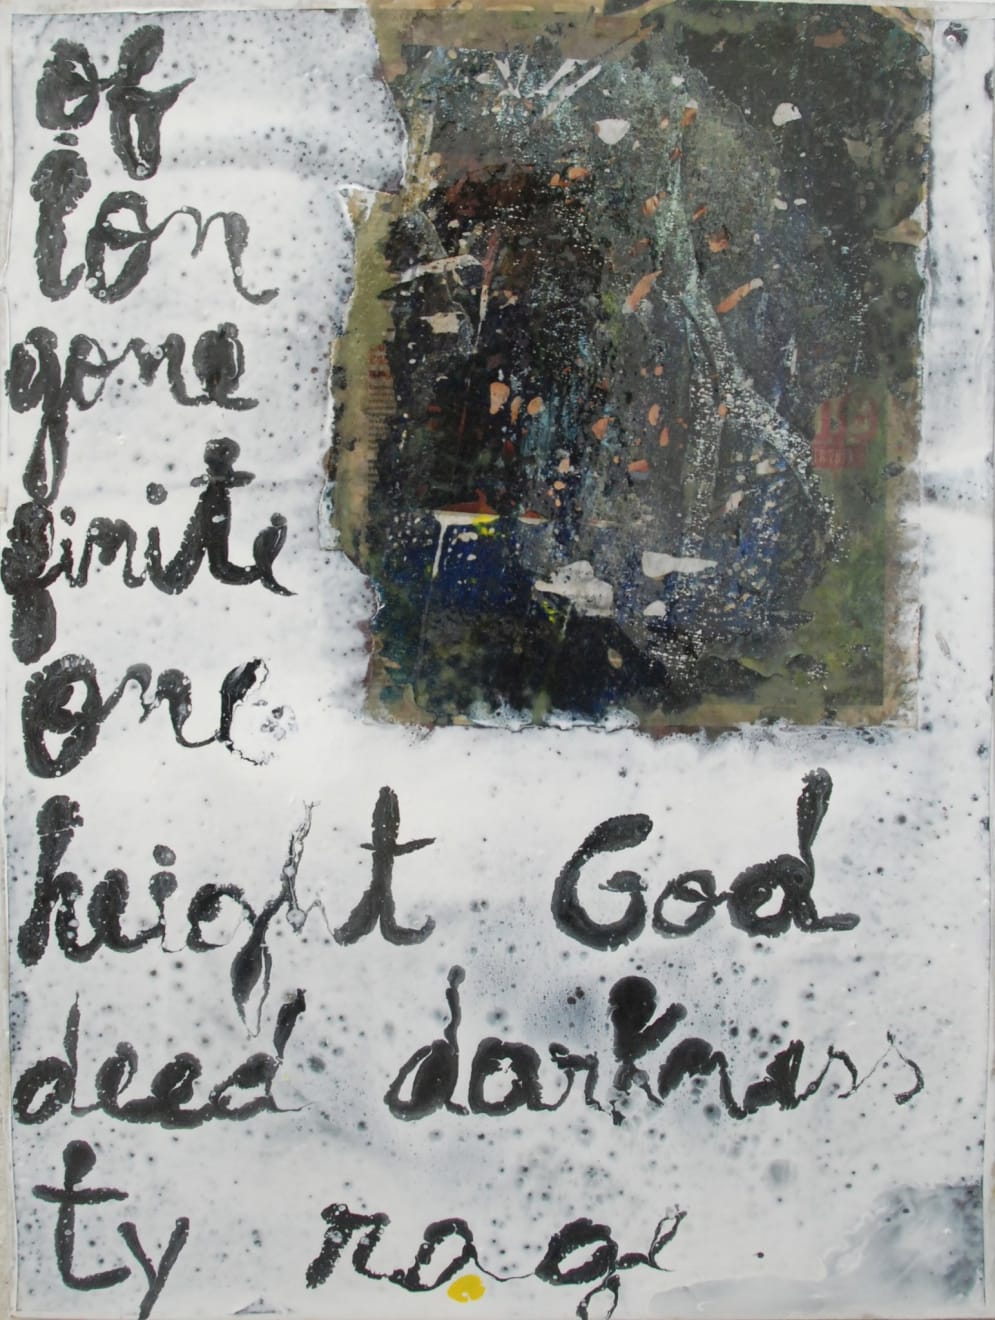 of
ion
gone
finite
one
height God
deed darkness
ty rage
19